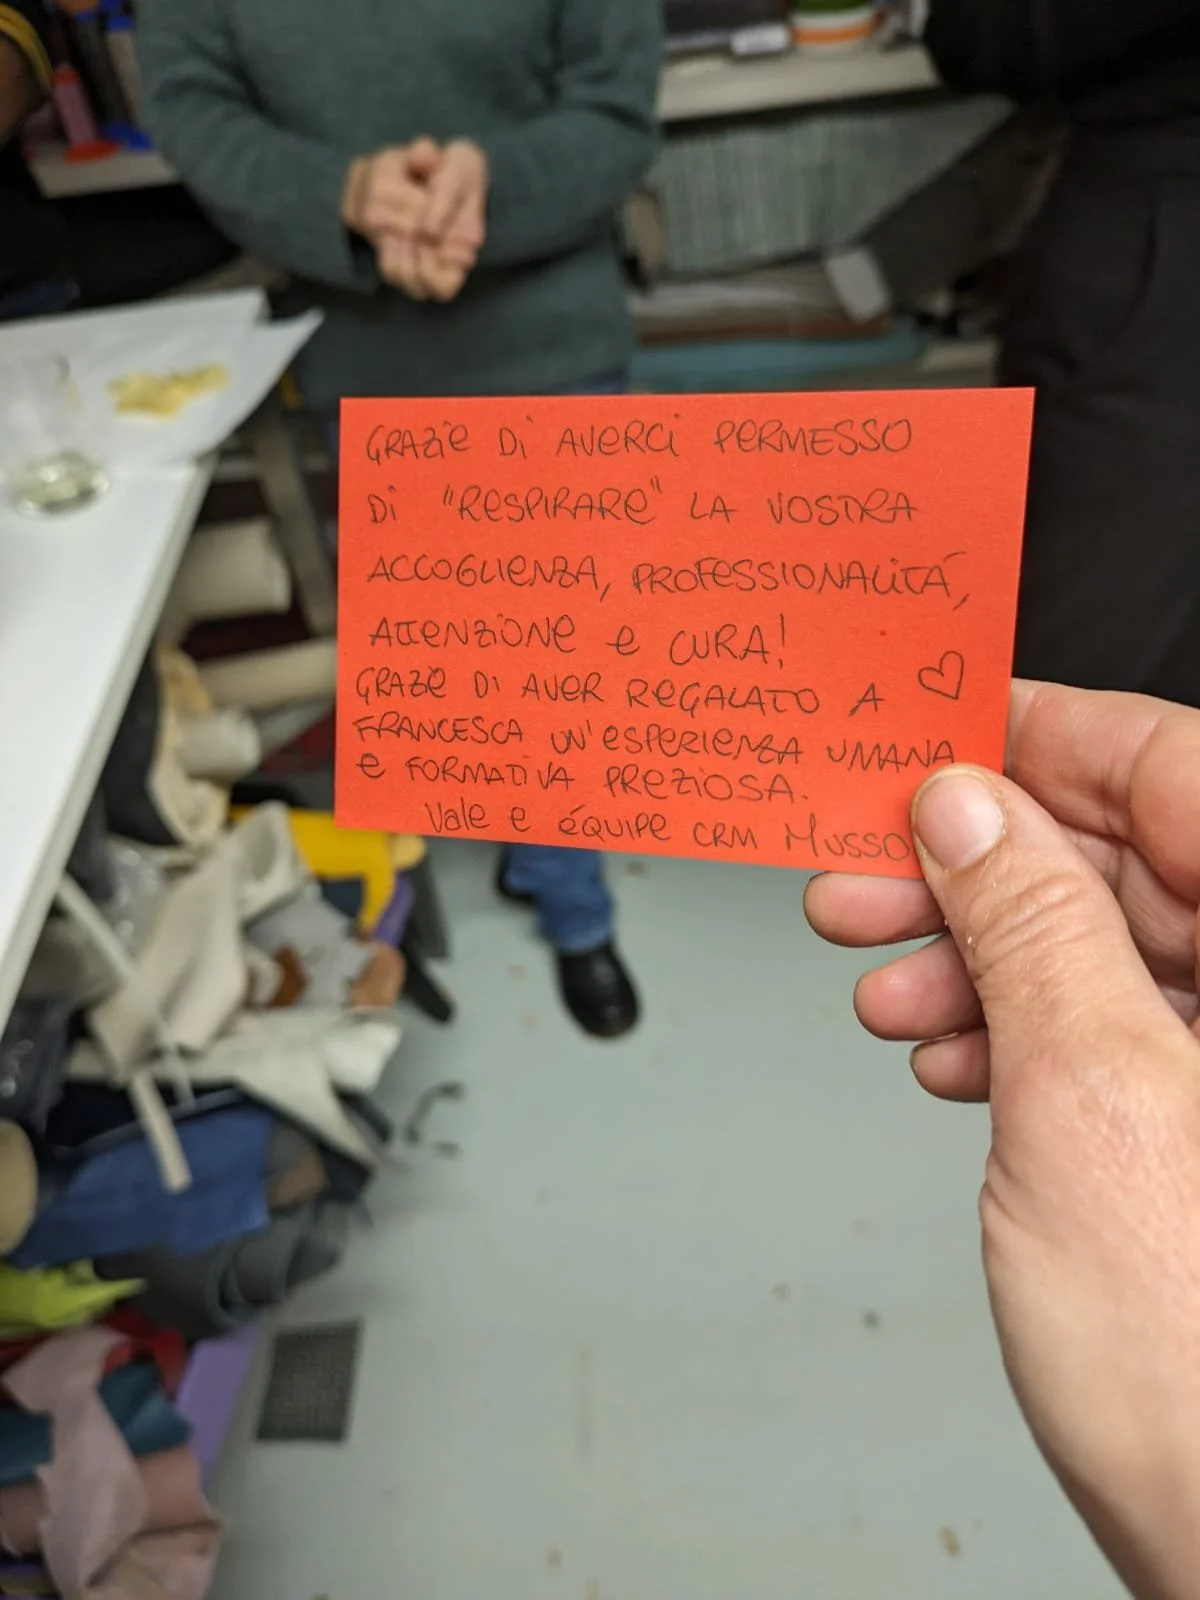 GRAZIE DI AVERCI PERMESSO
DI "RESPIRARE" LA VOSTRA
ACCOGLIENZA, PROFESSIONALITÁ,
ATTENZIONE e CURA!
GRAZIE DI AVER REGALATO A
FRANCESCA UN'ESPERIENZA UMANA
e FORMATIVA PREZIOSA.
Vale e équipe CRM MUSSO